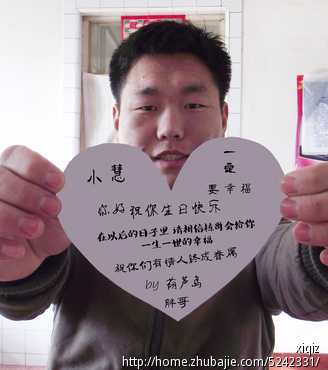 小慧
一定
要幸福
你好祝你生日快乐
在以后的日子里 请相信杨尚会给你
一生一世的幸福
祝你们有情人终成眷属
by 葫芦岛
胖哥
xiqiz
http://home.zhubajie.com/5242331/